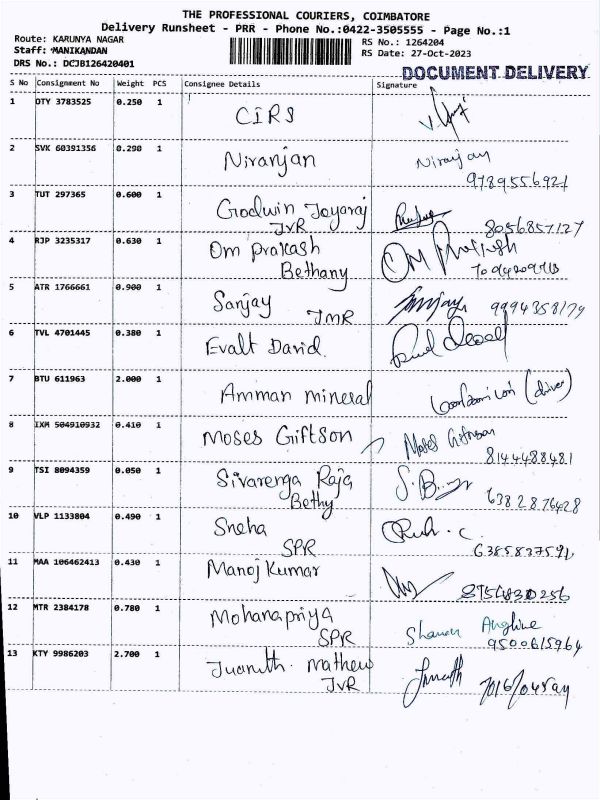 THE PROFESSIONAL COURIERS, COIMBATORE
Delivery Runsheet - PRR - Phone No.:0422-3505555 - Page No.:1
Route: KARUNYA NAGAR RS No.: 1264204
Staff: MANIKANDAN RS Date: 27-Oct-2023
DRS No.: DCJB126420401
DOCUMENT DELIVERY
S No Consignment No Weight PCS Consignee Details Signature
1 OTY 3783525 0.250 1 CIRS
2 SVK 60391356 0.290 1 Niranjan Niranjan
9789556921
3 TUT 297365 0.600 1 Godwin Jeyaraj
JVR 8056857127
4 RJP 3235317 0.630 1 Om prakash Om Prakash
Bethany
5 ATR 1766661 0.900 1 Sanjay Sanjay 9994358179
JMR
6 TVL 4701445 0.380 1 Evalt David
7 BTU 611963 2.000 1 Amman mineral (driver)
8 IXM 504910932 0.410 1 Moses Giftson Moses Giftson
8144488481
9 TSI 8094359 0.050 1 Sivarenga Raja
Bethy 6382876428
10 VLP 1133804 0.490 1 Sneha
SPR 6385837591
11 MAA 106462413 0.430 1 Manoj Kumar
12 MTR 2384178 0.780 1 Mohanapriya Angline
SPR 9500615964
13 KTY 9986203 2.700 1 Mathew
JVR